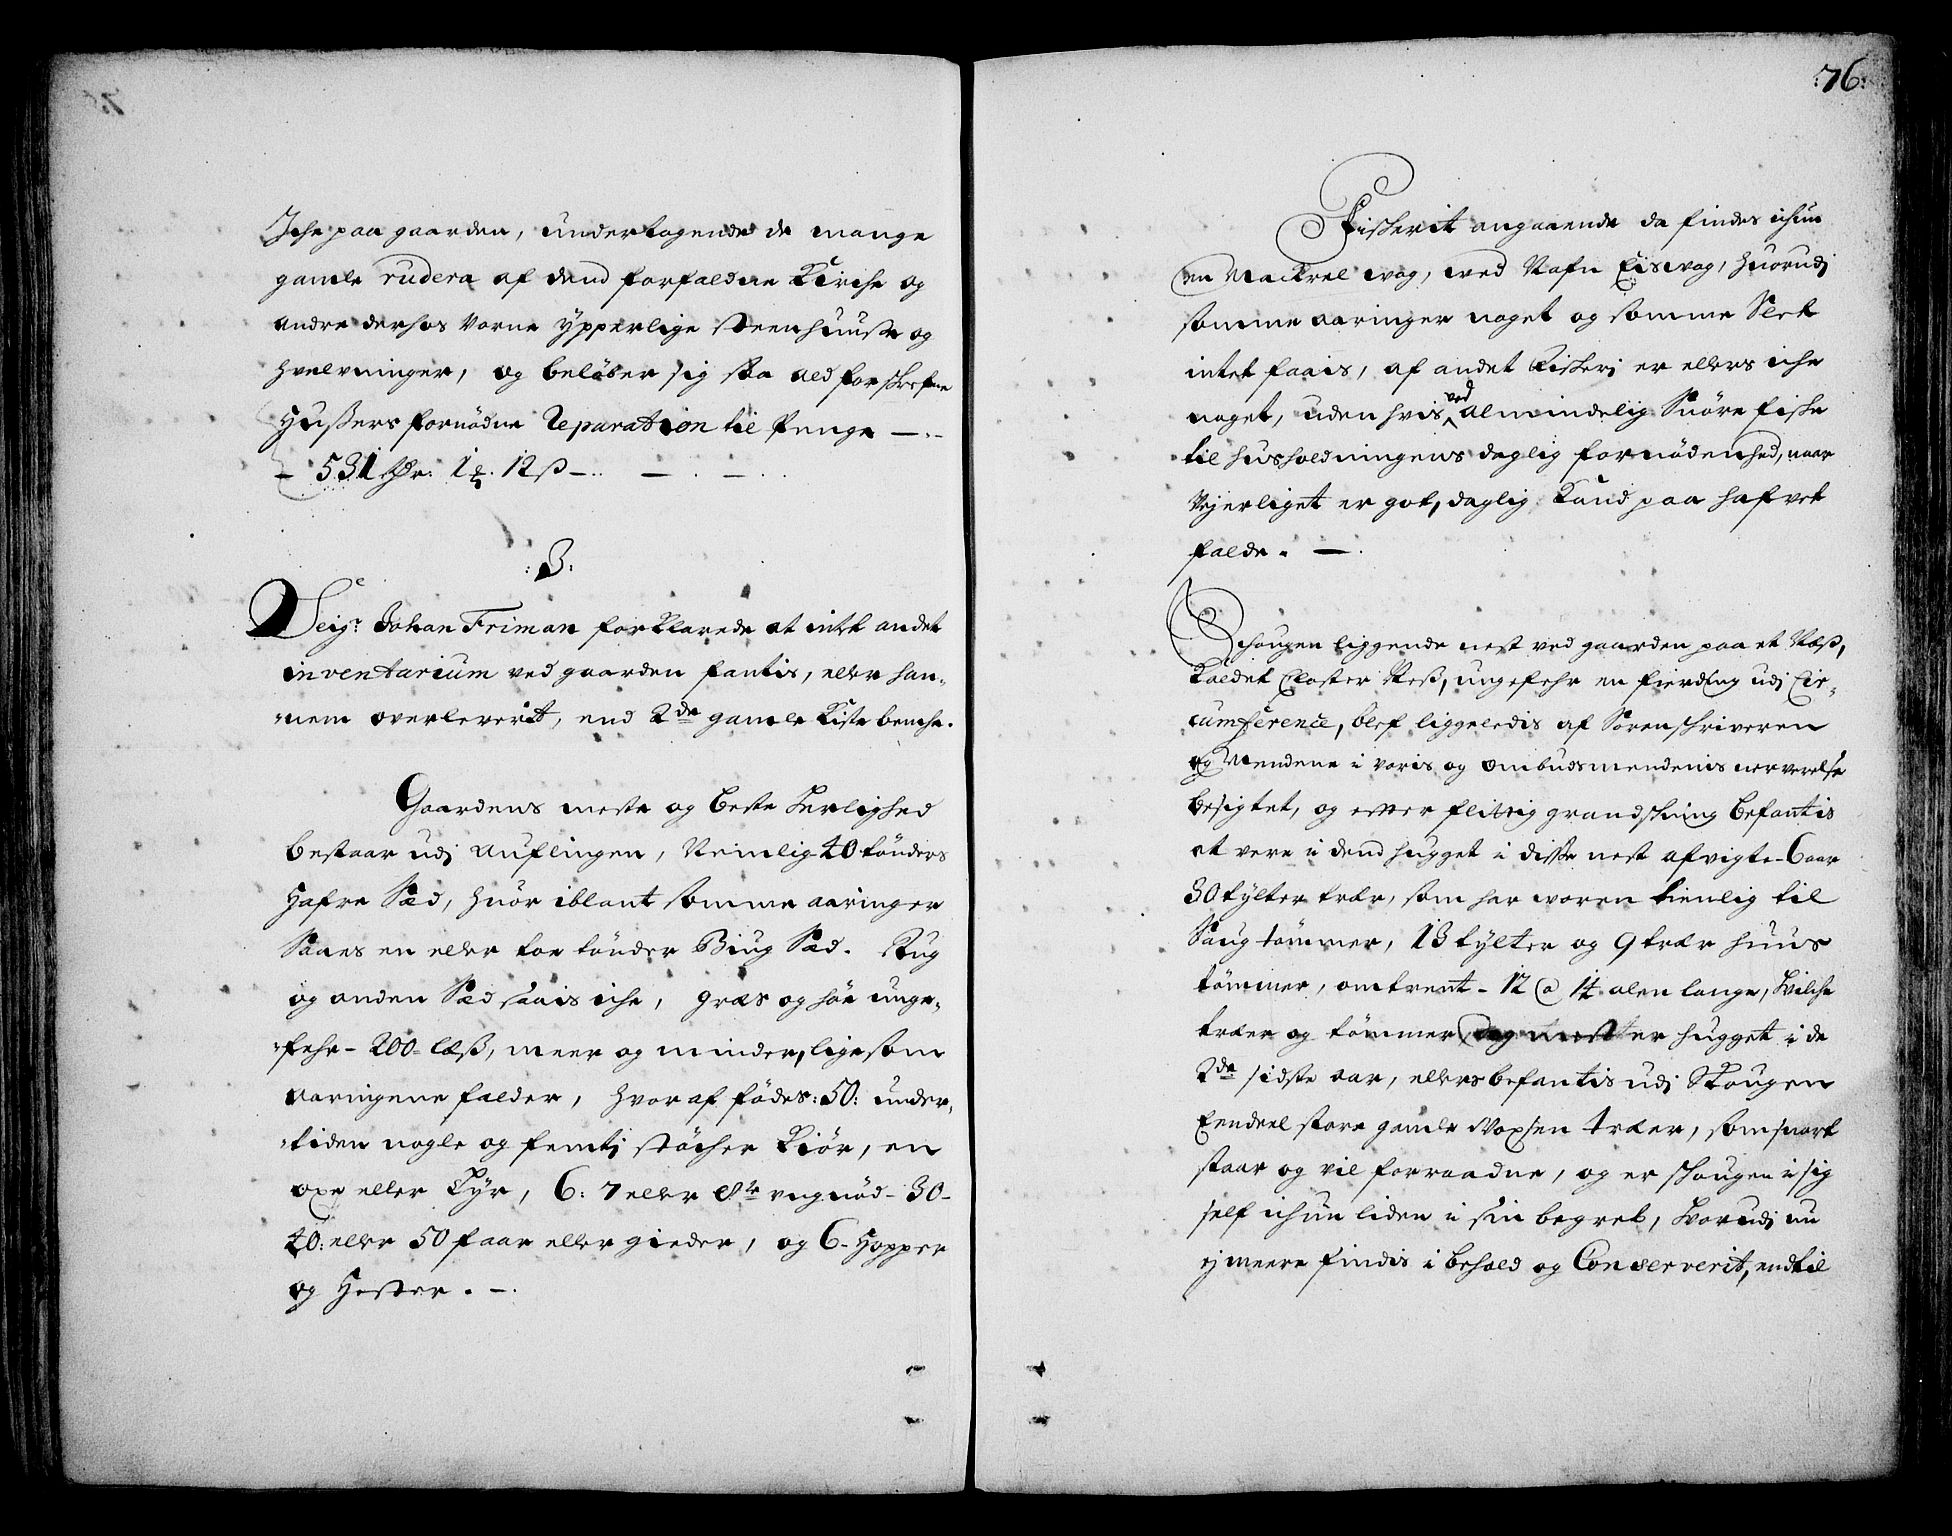 Iche paa gaarden, undertagende de mange
gamle rudera af dend forfaldne Kirche og
andre derhos varne ypperlige Steenhuuse og
Hvelvninger, og beløber sig saa ald forschrefne
Hußers fornødne Reparation til Penge —.-
- 531 Dr: 1 ₰. 12 ß -.. — . — . .
:3:
Seigr Johan Friman forklarede at intet andet
inventarium ved gaarden fantis, eller han-
-nem overleverit, end 2de gamle Kiste benche.
Gaardens meste og beste Herlighed
bestaar udj Auflingen, Nemlig 40 tønders
Hafre Sæd, huor iblant somme aaringer
Saaes en eller toe tønder Biug Sæd. Rug
og anden Sæd saais iche, græs og høe unge-
-fehr - 200 - læß, meer og minder, ligesom
aaringene falder, hvoraf fødes: 50: under-
-tiden nogle og femtj støcher Kiør, en
oxe eller Tyr, 6: 7 eller 8te ungnød - 30 -
40: eller 50 faar eller gieder, og 6 - Hopper
og Hester. —.
:76:
Fisherit angaaende da findes ichun
en Mackrel wog, wed Nafn Eiswog, huorudj
somme aaringer noget og somme Slet
intet faais, af andet Fisherj er ellers iche
noget, uden hvis ved almindelig Snøre fishe
til husholdningens daglig fornødenhed, naar
Vejerliget er got, daglig Kand paa hafvet
falde. —.
Schougen liggende nest ved gaarden paa et Næß,
Kaldet Closter Neß, ungefehr en fierding udj Cir-
cumference, blef liggeledis af Sorenschriveren
og Mendene i voris og ombudsmendenis nerverelse
besigtet, og efter flittig grandskning befantis
at vere i dend hugget i disse nest afvigte - 6 aar
30 tylter træer, som har woren tienlig til
Saug tømmer, 13 tylter og 9 træer huus
tømmer, omtrent - 12 a 14 alen lange, hvilche
træer og tømmer er hugget i de
2de sidste aar, ellers befantis udj Skougen
Eendeel store gamle Voxsen træer, som snart
staar og vil forraadne, og er schougen i sig
self ichun liden i sin begreb, hvorudj nu
ej meere findis i behold og Conserverit, end til